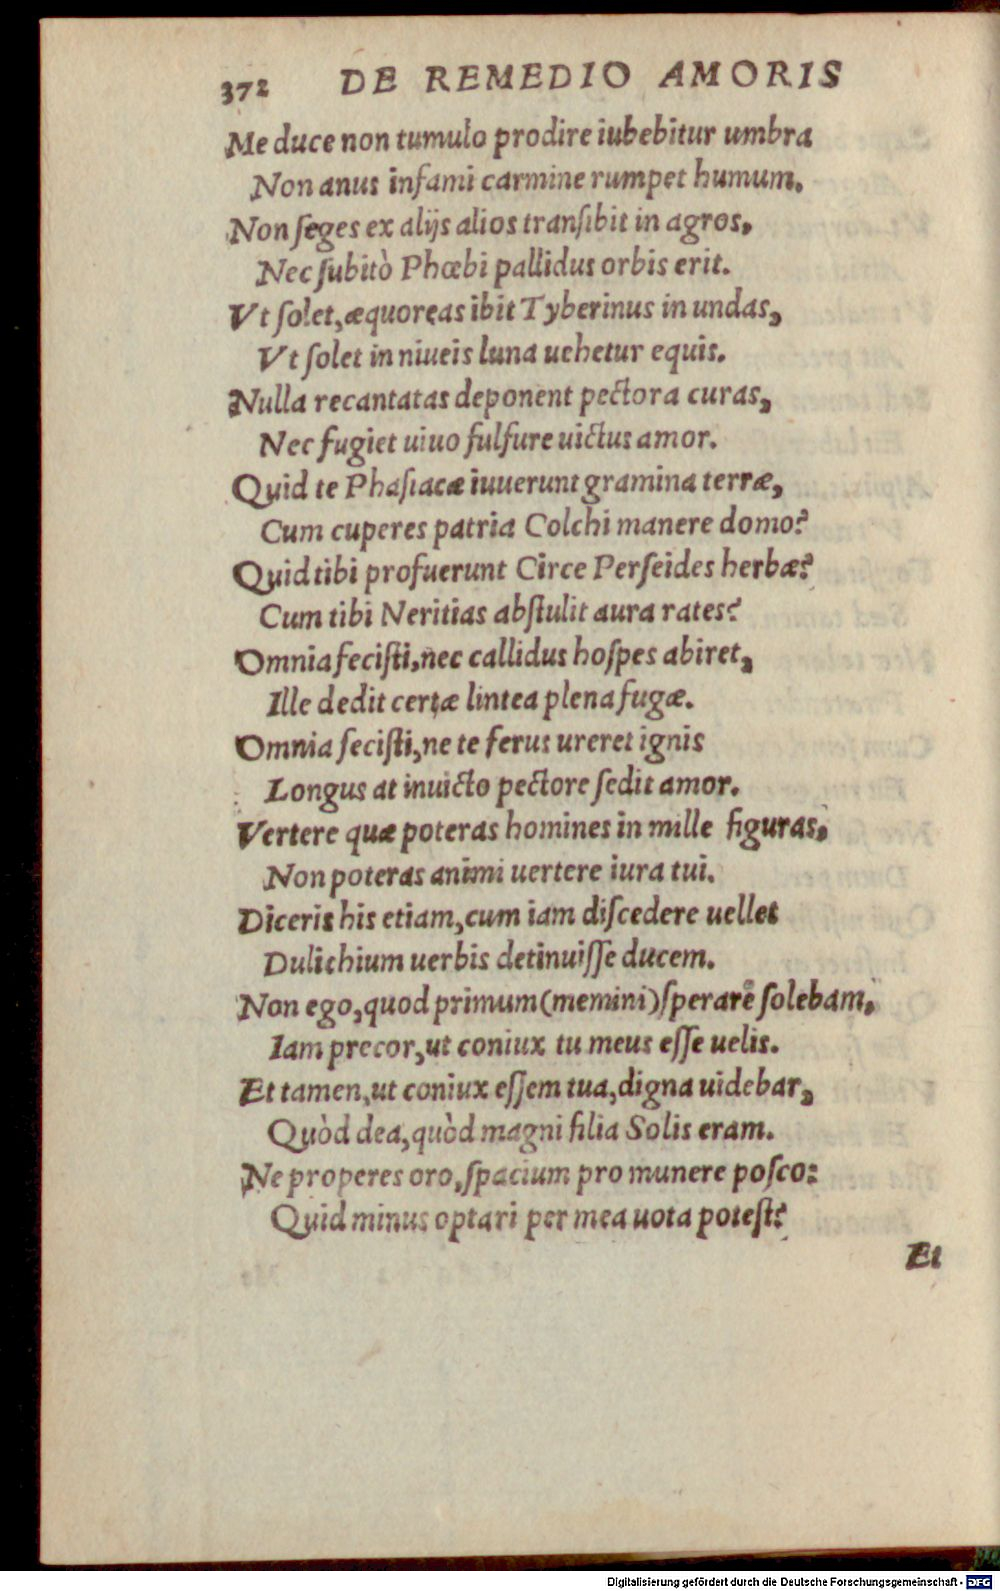 372 DE REMEDIO AMORIS
Me duce non tumulo prodire iubebitur umbra
Non anus infami carmine rumpet humum.
Non ſeges ex alijs alios tranſibit in agros,
Nec ſubitò Phœbi pallidus orbis erit.
Vt ſolet, æquoreas ibit Tyberinus in undas,
Vt ſolet in niueis luna uehetur equis.
Nulla recantatas deponent pectora curas,
Nec fugiet uiuo fulfure uictus amor.
Quid te Phaſiacæ iuuerunt gramina terræ,
Cum cuperes patria Colchi manere domo?
Quid tibi profuerunt Circe Perſeides herbæ?
Cum tibi Neritias abſtulit aura rates?
Omnia feciſti, nec callidus hoſpes abiret,
Ille dedit certæ lintea plena fugæ.
Omnia feciſti, ne te ferus ureret ignis
Longus at inuicto pectore ſedit amor.
Vertere quæ poteras homines in mille figuras,
Non poteras animi uertere iura tui.
Diceris his etiam, cum iam diſcedere uellet
Dulichium uerbis detinuiſſe ducem.
Non ego, quod primum (memini) ſperare ſolebam,
Iam precor, ut coniux tu meus eſſe uelis.
Et tamen, ut coniux eſſem tua, digna uidebar,
Quòd dea, quòd magni filia Solis eram.
Ne properes oro, ſpacium pro munere poſco:
Quid minus optari per mea uota poteſt?
Et
Digitalisierung gefördert durch die Deutsche Forschungsgemeinschaft - DFG